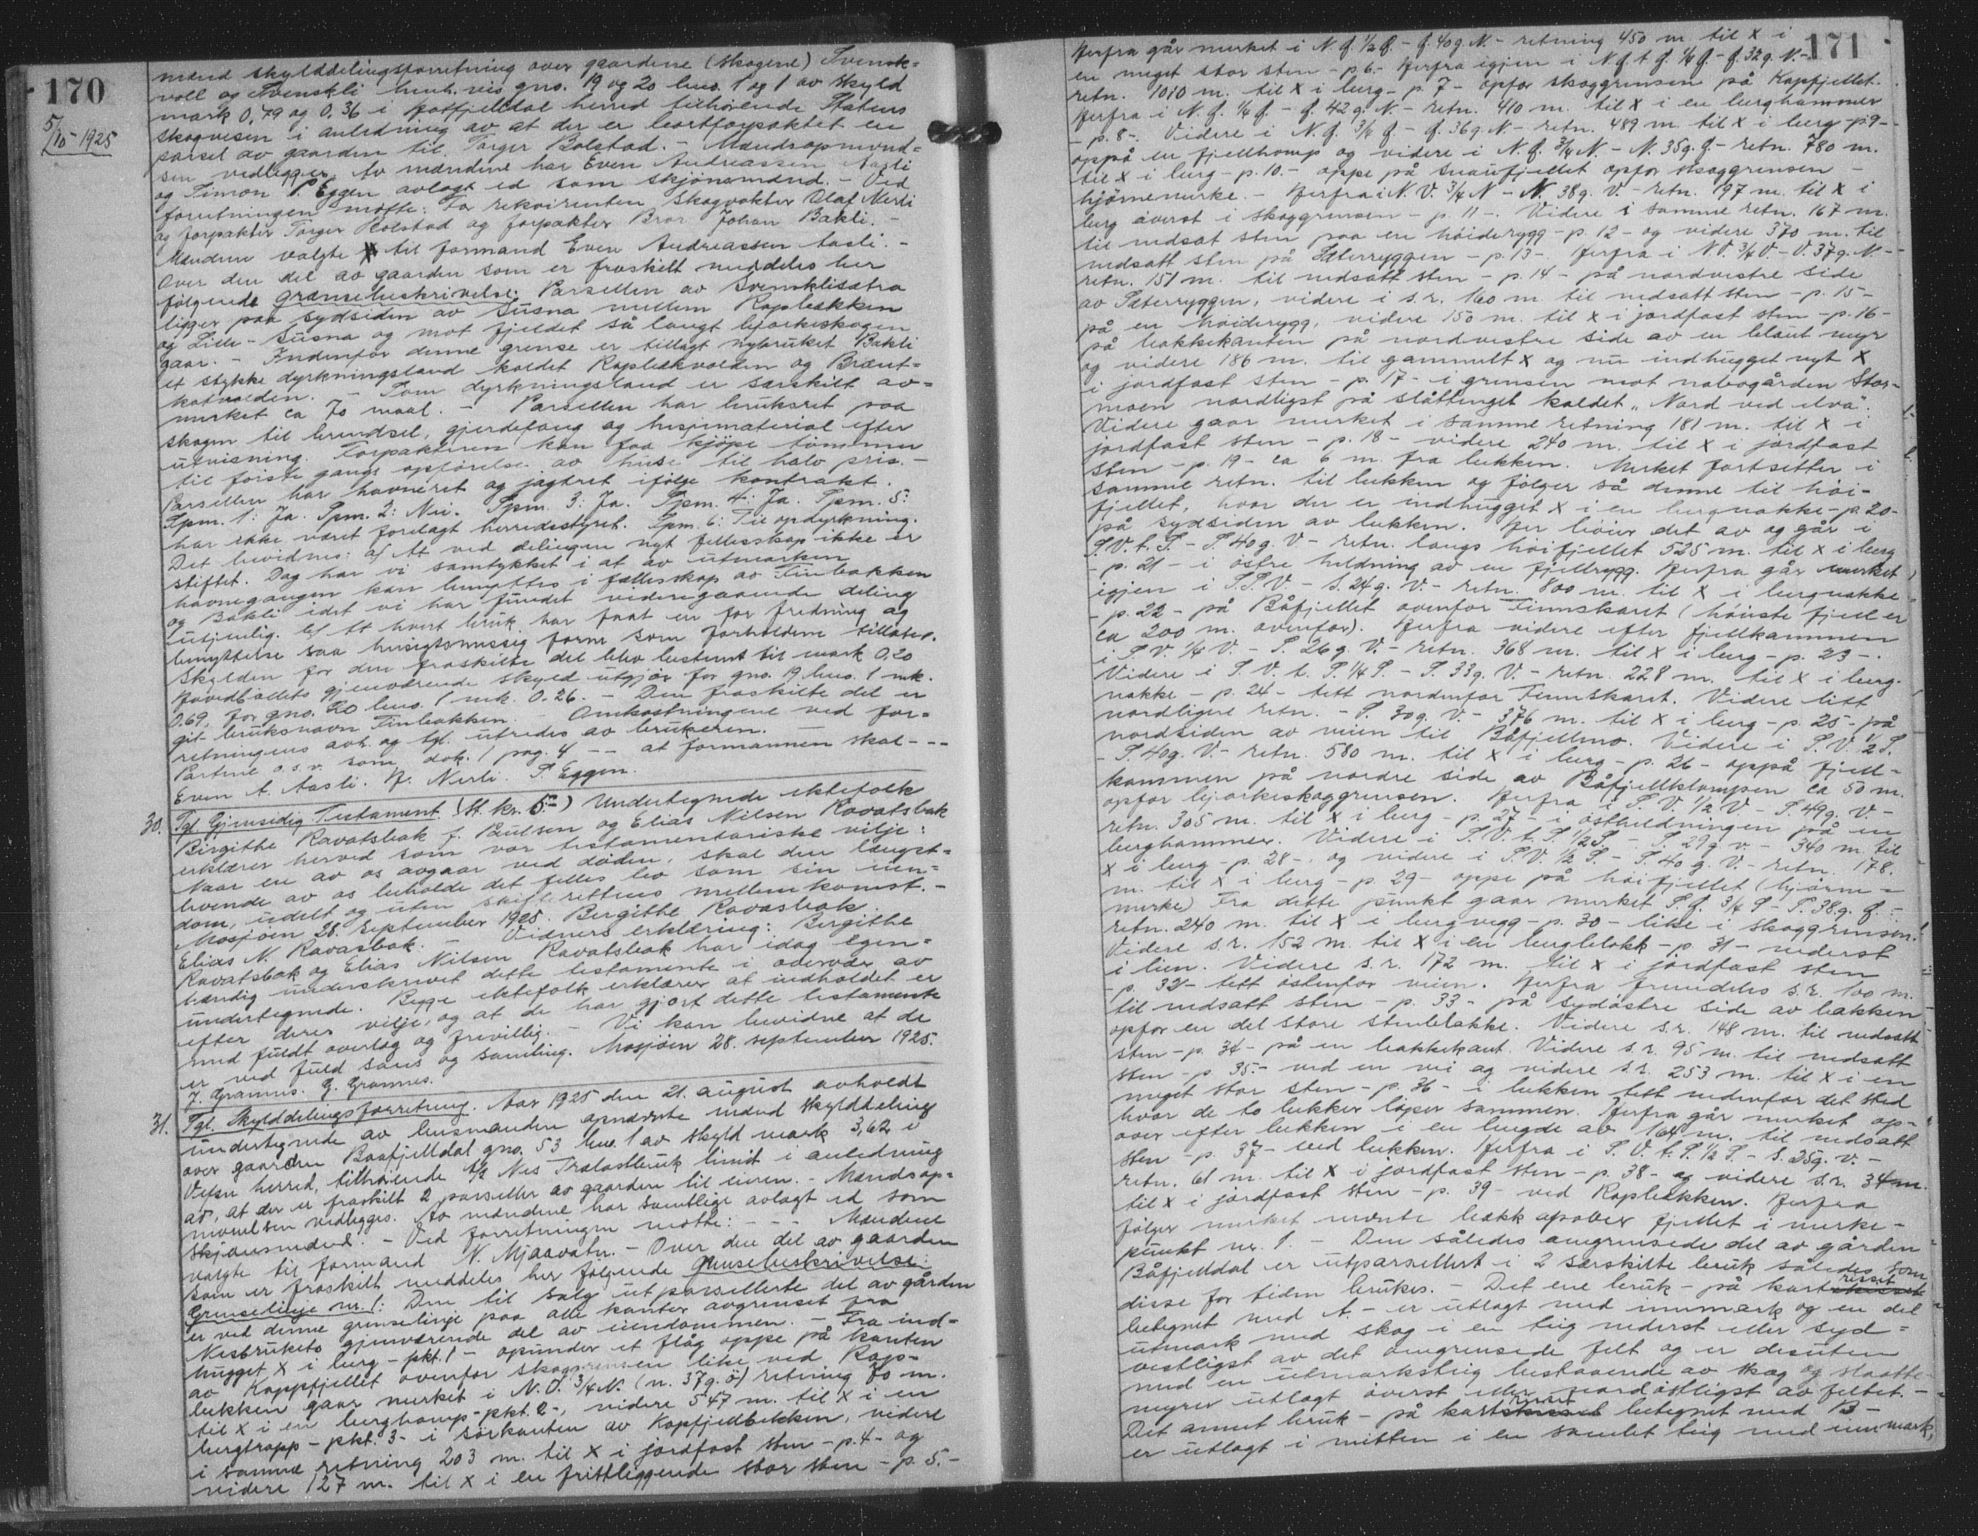 170
5/10-1925
mænd skylddelingsforretning over gaardene (skogene) Svensk-
voll og Svenskli henh.vis gno. 19 og 20 bno. 1 og 1 av skyld
mark 0,79 og 0,36 i Hatfjelldal herred tilhørende Statens
skogvesen i anledning av at der er bortforpaktet en
parsel av gaarden til Torger Bolstad. - Mændsopnævnel-
sen vedlegges. Av mændene har Even Andreassen Aasli
og Simon P. Eggen avlagt ed som skjønsmænd. - Ved
forretningen møtte: For rekvirenten skogvokter Olaf Nerli
og forpakter Torger Bolstad og forpakter Bror Johan Bakli. -
Mændene valgte til formand Even Andreassen Aasli. -
Over den del av gaarden som er fraskilt meddeles her
følgende grænsebeskrivelse: Parsellen av Svensklisætra
ligger paa sydsiden av Susna mellem Rapbækken
og Lille-Susna og mot fjeldet så langt bjørkeskogen
gaar. - Indenfor denne grense er tillagt nybruket Bakli
et stykke dyrkningsland kaldet Rapbækvolden og Brænt-
kotvolden. - Som dyrkningsland er særskilt av-
merket ca 70 maal. - Parsellen har bruksret paa
skogen til brendsel, gjerdefang og hesjematerial efter
utvisning. Forpakteren kan faa kjøpe tømmer
til første gangs opførelse av huse til halv pris. -
Parsellen har havneret og jagtret ifølge kontrakt.
Spm. 1: Ja. Spm. 2: Nei. Spm. 3: Ja. Spm. 4: Ja. Spm. 5:
har ikke været forelagt herredsstyret. Spm. 6: Til opdyrkning.
Det bevidnes: a) At ved delingen nyt fellesskap ikke er
stiftet. Dog har vi samtykket i at av utmarken
havnegangen kan benyttes i fellesskap av Finbakken
og Bakli idet vi har fundet videregaaende deling
utjenlig. b) At hvert bruk har faat en for fredning og
benyttelse saa hensigtsmessig form som forholdene tillater.
Skylden for den fraskilte del blev bestemt til mark 0,20
Hovedbølets gjenværende skyld utgjør for gno. 19 bno. 1 mk.
0.69, for gno. 20 bno. 1 mk. 0.26. - Den fraskilte del er
git bruksnavn Finbakken. - Omkostningene ved for-
retningens avh. og tgl. utredes av brukeren. -
Partene o.s.v. som dok. 1 pag. 4 -- at formannen skal---
Even A. Aasli. N. Nerli. S. Eggen.
30. Tgl. Gjensidig Testament (St. kr. 5-) Undertegnede ektefolk
Birgithe Ravatsbak f. Paulsen og Elias Nilsen Ravatsbak
erklærer herved som vor testamentariske vilje:
Naar en av os avgaar ved døden, skal den længst-
levende av os beholde det felles bo som sin eien-
dom, udelt og uten skifterettens mellemkomst. -
Mosjøen 28. september 1925. Birgithe Ravasbak.
Elias N. Ravasbak. - Vidners erklæring: Birgithe
Ravatsbak og Elias Nilsen Ravatsbak har idag egen-
hændig underskrevet dette testamente i overvær av
undertegnede. Begge ektefolk erklærer at indholdet er
efter deres vilje, og at de har gjort dette testamente
med fuldt overlæg og frivillig. - Vi kan bevidne at de
er ved fuld sans og samling. Mosjøen 28. september 1925.
J. Grannes. G. Grannes.
31. Tgl. Skylddelingsforretning. Aar 1925 den 21. august avholdt
undertegnede av lensmanden opnævnte mænd skylddeling
over gaarden Baafjelldal gno. 53 bno. 1 av skyld mark 3,62 i
Vefsn herred, tilhørende A/S Nes Trælastbruk limit i anledning
av, at der er fraskilt 2 parseller av gaarden til eieren. - Mændsop-
nævnelsen vedlegges. Av mændene har samtlige avlagt ed som
skjønsmænd. - Ved forretningen møtte: - - - Mændene
valgte til formand N. Mjaavatn. - Over den del av gaarden
som er fraskilt meddeles her følgende grensebeskrivelse:
Grenselinje nr. 1: Den til salg utparsellerte del av gården
er ved denne grenselinje paa alle kanter avgrenset fra
Nesbrukets gjenværende del av eiendommen. - Fra ind-
hugget x i berg - pkt. 1 - opunder et flåg oppe på kanten
av Kappfjellet ovenfor skoggrensen like ved Rap-
bekken gaar merket i N.Ø. 3/4 N. (n. 37 g. ø) retning 70 m.
til x i en berghomp - pkt. 2 -, videre 547 m. til x i en
bergtrapp - pkt. 3 - i sørkanten av Kapfjellbekken, videre
i samme retning 203 m. til x i jordfast sten - p. 4 - og
videre 127 m. til x i en frittliggende stor sten - p. 5. -
171
Herfra går merket i N.Ø. 1/2 Ø. - Ø. 40 g. N. - retning 450 m. til x i
en meget stor sten - p. 6 - Herfra igjen i N.Ø. t. Ø. 1/4 Ø. - Ø. 32 g. N. -
retn. 1010 m. til x i berg - p. 7 - opfor skoggrensen på Kappfjellet.
Herfra i N.Ø. 1/4 Ø. - Ø. 42 g. N. - retn. 410 m. til x i en berghammer
- p. 8 -. Videre i N.Ø. 3/4 Ø. - Ø. 36 g. N - retn. 489 m. til x i berg - p. 9 -
oppå en fjellhomp og videre i N.Ø. 3/4 N. - N. 35 g. Ø. - retn. 780 m.
til x i berg - p. 10. - oppe på Snaufjellet opfor skoggrensen -
hjørnemerke. - Herfra i N.V. 3/4 N - N. 38 g. V. - retn. 197 m. til x i
berg øverst i skoggrensen - p. 11 -. Videre i samme retn. 167 m.
til nedsat sten paa en høiderygg - p. 12 - og videre 370 m. til
nedsatt sten på Sæterryggen - p. 13 - Herfra i N.V. 3/4 V. - V. 37 g. N. -
retn. 151 m. til nedsatt sten - p. 14 - på nordvestre side
av Sæterryggen, videre i s.r. 160 m til nedsatt sten - p. 15 -
på en høiderygg, videre 150 m. til x i jordfast sten - p. 16 -
på bakkekanten på nordvestre side av en blaut myr
og videre 186 m. til gammelt x og nu indhugget nyt x
i jordfast sten - p. 17 - i grensen mot nabogården Stor-
moen nordligst på slåttenget kaldet "Nord ved elva".
Videre gaar merket i samme retning 181 m. til x i
jordfast sten - p. 18 - videre 240 m. til x i jordfast
sten - p. 19 - ca 6 m. fra bekken. Merket fortsetter i
samme retn. til bekken og følger så denne til høi-
fjellet, hvor der er indhugget x i en bergnakke - p. 20 -
på sydsiden av bekken. Her bøier det av og går i
S.V. t. S. - S. 40 g. V - retn. langs høifjellet 525 m. til x i berg
- p. 21 - i østre heldning av en fjellrygg. Herfra går merket
igjen i S.S.V. - S. 24 g. V. - retn. 800 m. til x i bergnakke
- p. 22 - på Båfjellet ovenfor Finnskaret (høieste fjell er
ca 200 m. ovenfor). Herfra videre efter fjellkammen
i S.V. 1/4 V. - S. 26 g. V. - retn. 368 m. til x i berg - p. 23 -.
Videre i S.V. t. S. 1/4 S. - S. 33 g. V. - retn. 228 m. til x i berg-
nakke - p. 24 - tett nordenfor Finnskaret. Videre litt
nordligere retn. - S. 30 g. V. - 376 m. til x i berg - p. 25 - på
nordsiden av veien til Båfjellmo. Videre i S.V. 1/2 S.
- S. 40 g. V. - retn. 580 m. til x i berg - p. 26 - oppå fjell-
kammen på nordre side av Båfjellklumpen ca 50 m.
opfor bjørkeskoggrensen. Herfra i S.V. 1/2 V - S. 49 g. V. -
retn. 305 m. til x i berg - p. 27 - i østheldningen på en
berghammer. Videre i S.V. t. S. 1/2 S. - S. 29 g. v. - 340 m. til
x i berg - p. 28 -. og videre i S.V. 1/2 S. - S. 40 g. V. - retn. 178.
m. til x i berg - p. 29 - oppe på høifjellet (hjørne-
merke) Fra dette punkt gaar merket S.Ø. 3/4 S - S. 38 g. Ø. -
retn. 240 m. til x i bergvegg - p. 30 - like i skoggrensen.
Videre s.r. 152 m. til x i en bergblokk - p. 31 - nederst
i lien. Videre s.r. 172 m. til x i jordfast sten
- p. 32 - tett østenfor veien. Herfra fremdeles s.r. 100 m.
til nedsatt sten - p. 33 - på sydøstre side av bakken
opfor en del store stenblokke. Videre s.r. 148 m. til nedsatt
sten - p. 34 - på en bakkekant. Videre s.r. 95 m. til nedsatt
sten - p. 35. - ved en vei og videre s.r. 253 m. til x i en
meget stor sten - p. 36 - i bekken tett nedenfor det sted
hvor de to bekker løper sammen. Herfra går merket op-
over efter bekken i en lengde av 164 m. til nedsatt
sten - p. 37 - ved bekken. Herfra i S.V. t. S. 1/2 S. - S. 25 g. v. -
retn. 61 m. til x i jordfast sten - p. 38 - og videre s.r. 34 m.
til x i jordfast sten - p. 39 - ved Rapbekken. Herfra
følger merket nevnte bekk opover fjellet i merke-
punkt nr. 1. - Den således angrensede del av gården
Båfjelldal er utparsellert i 2 særskilte bruk således som
disse for tiden brukes. - Det ene bruk - på kartrisset
betegnet med A. - er utlagt med innmark og en del
utmark med skog i en teig nederst eller syd-
vestligst av det omgrensede felt og er desuten
med en utmarksteig bestaaende av skog og slaatte-
myrer utlagt øverst eller nordøstligst av feltet. -
Det annet bruk - på kartrisset betegnet med B -
er utlagt i mitten i en samlet teig med innmark,